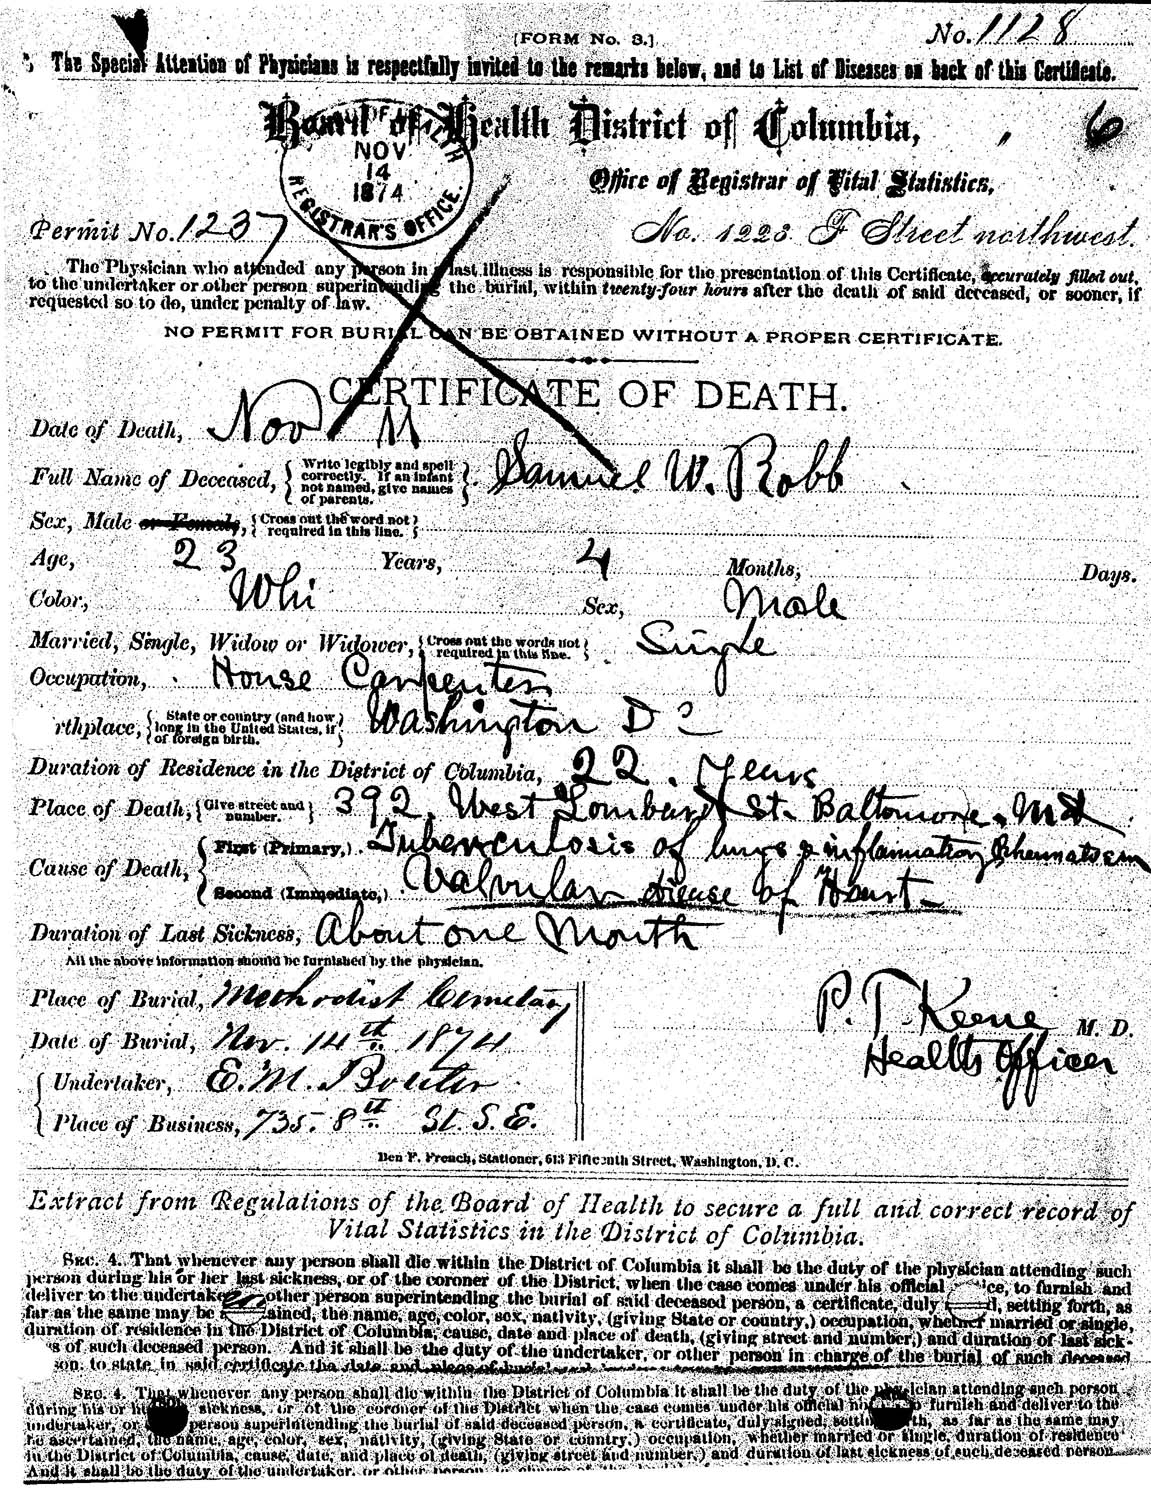 [FORM No. 3.]
No. 1128
The Special Attention of Physicians is respectfully invited to the remarks below, and to List of Diseases on back of this Certificate.
Board of Health District of Columbia,
6
NOV
14
1874
REGISTRAR'S OFFICE.
Office of Registrar of Vital Statistics,
Permit No. 1237
No. 1223 F Street northwest.
The Physician who attended any person in last illness is responsible for the presentation of this Certificate, accurately filled out,
to the undertaker or other person superintending the burial, within twenty-four hours after the death of said deceased, or sooner, if
requested so to do, under penalty of law.
NO PERMIT FOR BURIAL CAN BE OBTAINED WITHOUT A PROPER CERTIFICATE.
CERTIFICATE OF DEATH.
Date of Death, Nov 11
Full Name of Deceased, { Write legibly and spell correctly. If an infant not named, give names of parents. } Samuel W. Robb
Sex, Male or Female, { Cross out the word not required in this line. }
Age, 23 Years, 4 Months, Days.
Color, Whi Sex, Male
Married, Single, Widow or Widower, { Cross out the words not required in this line. } Single
Occupation, House Carpenter
rthplace, { State or country (and how long in the United States, if of foreign birth. } Washington D C
Duration of Residence in the District of Columbia, 22 . Years
Place of Death, { Give street and number. } 392. West Lombard St. Baltimore. Md
Cause of Death, { First (Primary,) Tuberculosis of lungs & inflammatory Rheumatism
Second (Immediate,) Valvular disease of Heart
Duration of Last Sickness, About one Month
All the above information should be furnished by the physician.
Place of Burial, Methodist Cemetary
P. T. Keene M. D.
Date of Burial, Nov. 14th 1874
Health Officer
Undertaker, E. M. Boteler
Place of Business, 735. 8th St. S. E.
Ben P. French, Stationer, 613 Fifteenth Street, Washington, D. C.
Extract from Regulations of the Board of Health to secure a full and correct record of
Vital Statistics in the District of Columbia.
SEC. 4. That whenever any person shall die within the District of Columbia it shall be the duty of the physician attending such
person during his or her last sickness, or of the coroner of the District, when the case comes under his official ice, to furnish and
deliver to the undertaker other person superintending the burial of said deceased person, a certificate, duly d, setting forth, as
far as the same may be ained, the name, age, color, sex, nativity, (giving State or country,) occupation, whether married or single,
duration of residence in the District of Columbia, cause, date and place of death, (giving street and number,) and duration of last sick-
s of such deceased person. And it shall be the duty of the undertaker, or other person in charge of the burial of such deceased
son, to state in said certificate the date and place of burial
SEC. 4. That whenever any person shall die within the District of Columbia it shall be the duty of the physician attending such person
during his or her sickness, or of the coroner of the District when the case comes under his official no to furnish and deliver to the
undertaker, or person superintending the burial of said deceased person, a certificate, duly signed, settin th, as far as the same may
be ascertained, the name, age, color, sex, nativity, (giving State or country,) occupation, whether married or single, duration of residence
in the District of Columbia, cause, date, and place of death, (giving street and number,) and duration of last sickness of such deceased person
And it shall be the duty of the undertaker, or other person